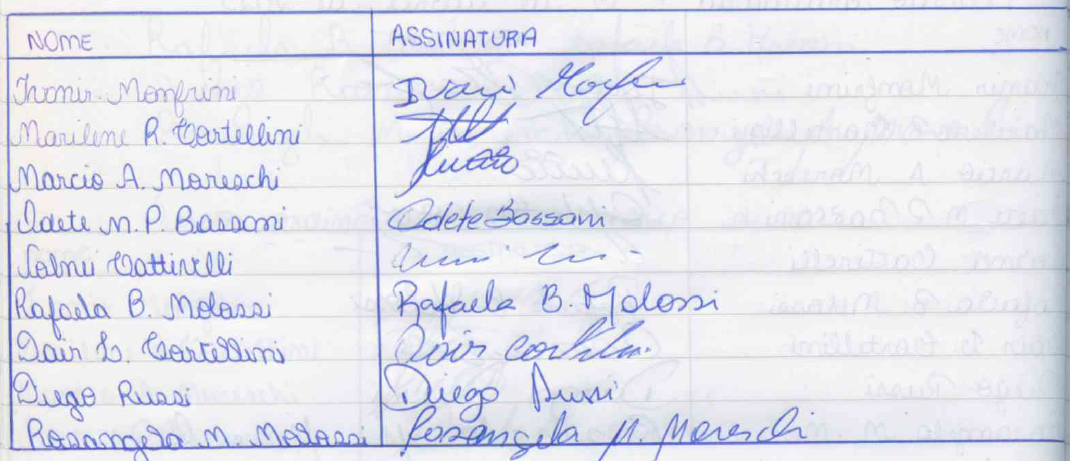 NOME ASSINATURA
Ivonir Monfrini Ivoni
Marilene R. Cortellini
Marcio A. Mareschi
Odete M. P. Bassani Odete Bassani
Cattinelli
Rafaela B. Molossi Rafaela B. Molossi
Odair L. Cortellini Odair
Diego Russi Diego Russi
Rosangela M. Molossi Rosangela M. Mareschi